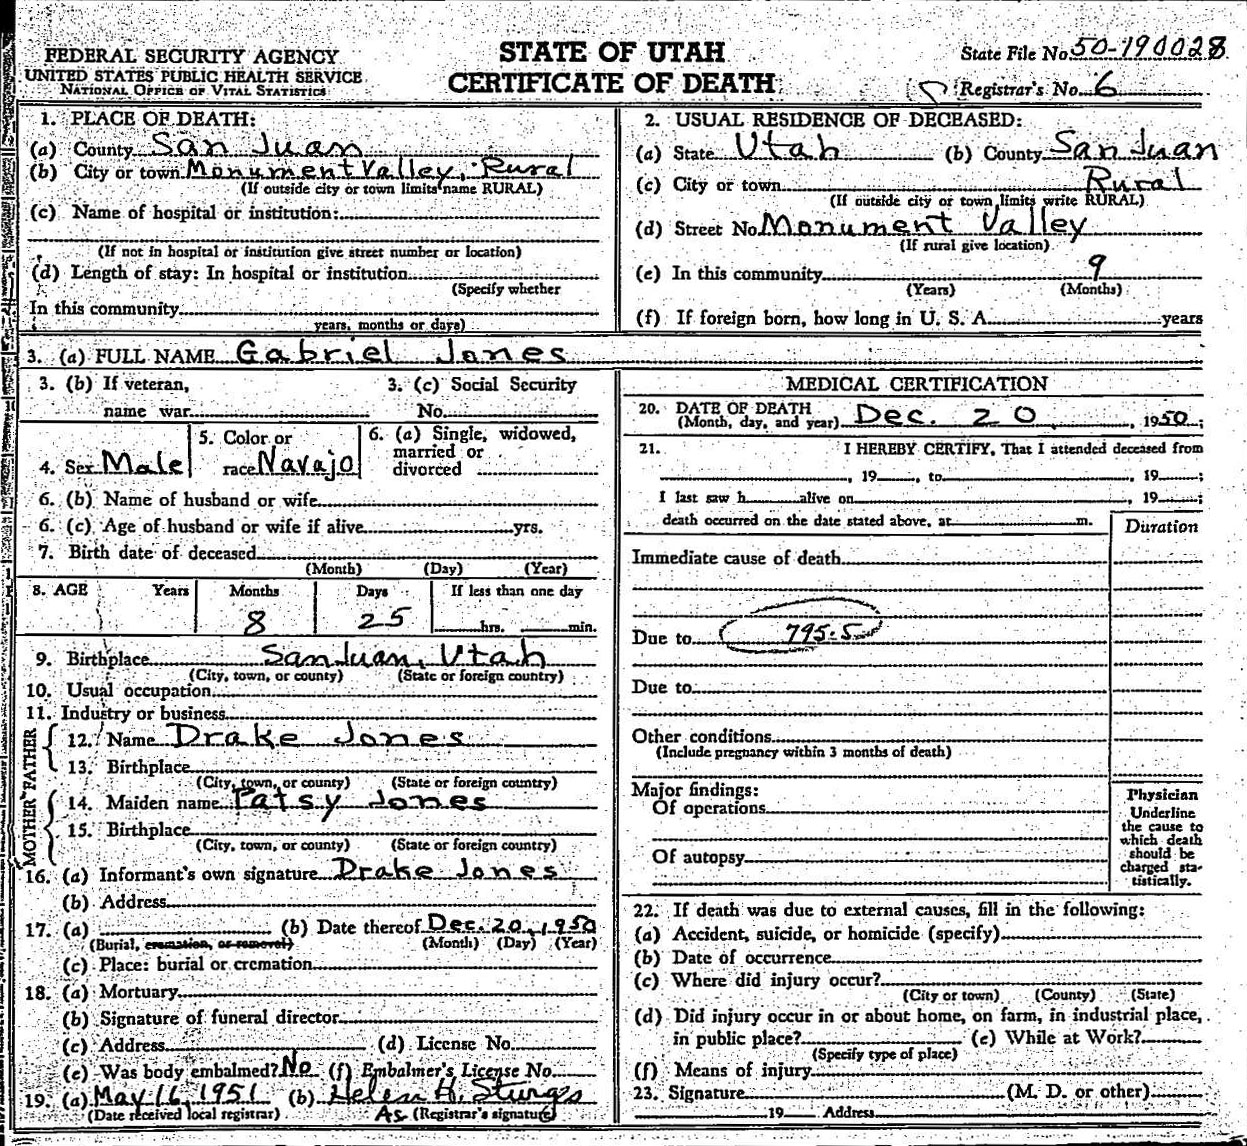 FEDERAL SECURITY AGENCY
UNITED STATES PUBLIC HEALTH SERVICE
NATIONAL OFFICE OF VITAL STATISTICS
STATE OF UTAH
CERTIFICATE OF DEATH
State File No. 50-190028
Registrar's No. 6
1. PLACE OF DEATH:
(a) County San Juan
(b) City or town Monument Valley, Rural
(If outside city or town limits name RURAL)
(c) Name of hospital or institution:
(If not in hospital or institution give street number or location)
(d) Length of stay: In hospital or institution
(Specify whether
In this community
years, months or days)
2. USUAL RESIDENCE OF DECEASED:
(a) State Utah (b) County San Juan
(c) City or town Rural
(If outside city or town limits write RURAL)
(d) Street No. Monument Valley
(If rural give location)
(e) In this community 9
(Years) (Months)
(f) If foreign born, how long in U. S. A. years
3. (a) FULL NAME Gabriel Jones
3. (b) If veteran, 3. (c) Social Security
name war No.
4. Sex Male
5. Color or
race Navajo
6. (a) Single, widowed,
married or
divorced
6. (b) Name of husband or wife
6. (c) Age of husband or wife if alive yrs.
7. Birth date of deceased
(Month) (Day) (Year)
8. AGE Years Months Days If less than one day
8 25 hrs. min.
9. Birthplace San Juan, Utah
(City, town, or county) (State or foreign country)
10. Usual occupation
11. Industry or business
FATHER
12. Name Drake Jones
13. Birthplace
(City, town, or county) (State or foreign country)
MOTHER
14. Maiden name Patsy Jones
15. Birthplace
(City, town, or county) (State or foreign country)
16. (a) Informant's own signature Drake Jones
(b) Address
17. (a) (b) Date thereof Dec. 20, 1950
(Burial, cremation, or removal) (Month) (Day) (Year)
(c) Place: burial or cremation
18. (a) Mortuary
(b) Signature of funeral director
(c) Address (d) License No.
(e) Was body embalmed? No (f) Embalmer's License No.
19. (a) May 16, 1951 (b) Helen H. Sturges
(Date received local registrar) As (Registrar's signature)
MEDICAL CERTIFICATION
20. DATE OF DEATH
(Month, day, and year) Dec. 20, 1950;
21. I HEREBY CERTIFY, That I attended deceased from
, 19 , to , 19 ;
I last saw h alive on , 19 ;
death occurred on the date stated above, at m.
Duration
Immediate cause of death
Due to 795.5
Due to
Other conditions
(Include pregnancy within 3 months of death)
Major findings:
Of operations
Of autopsy
Physician
Underline
the cause to
which death
should be
charged sta-
tistically.
22. If death was due to external causes, fill in the following:
(a) Accident, suicide, or homicide (specify)
(b) Date of occurrence
(c) Where did injury occur?
(City or town) (County) (State)
(d) Did injury occur in or about home, on farm, in industrial place,
in public place? (e) While at Work?
(Specify type of place)
(f) Means of injury
23. Signature (M. D. or other)
19 Address